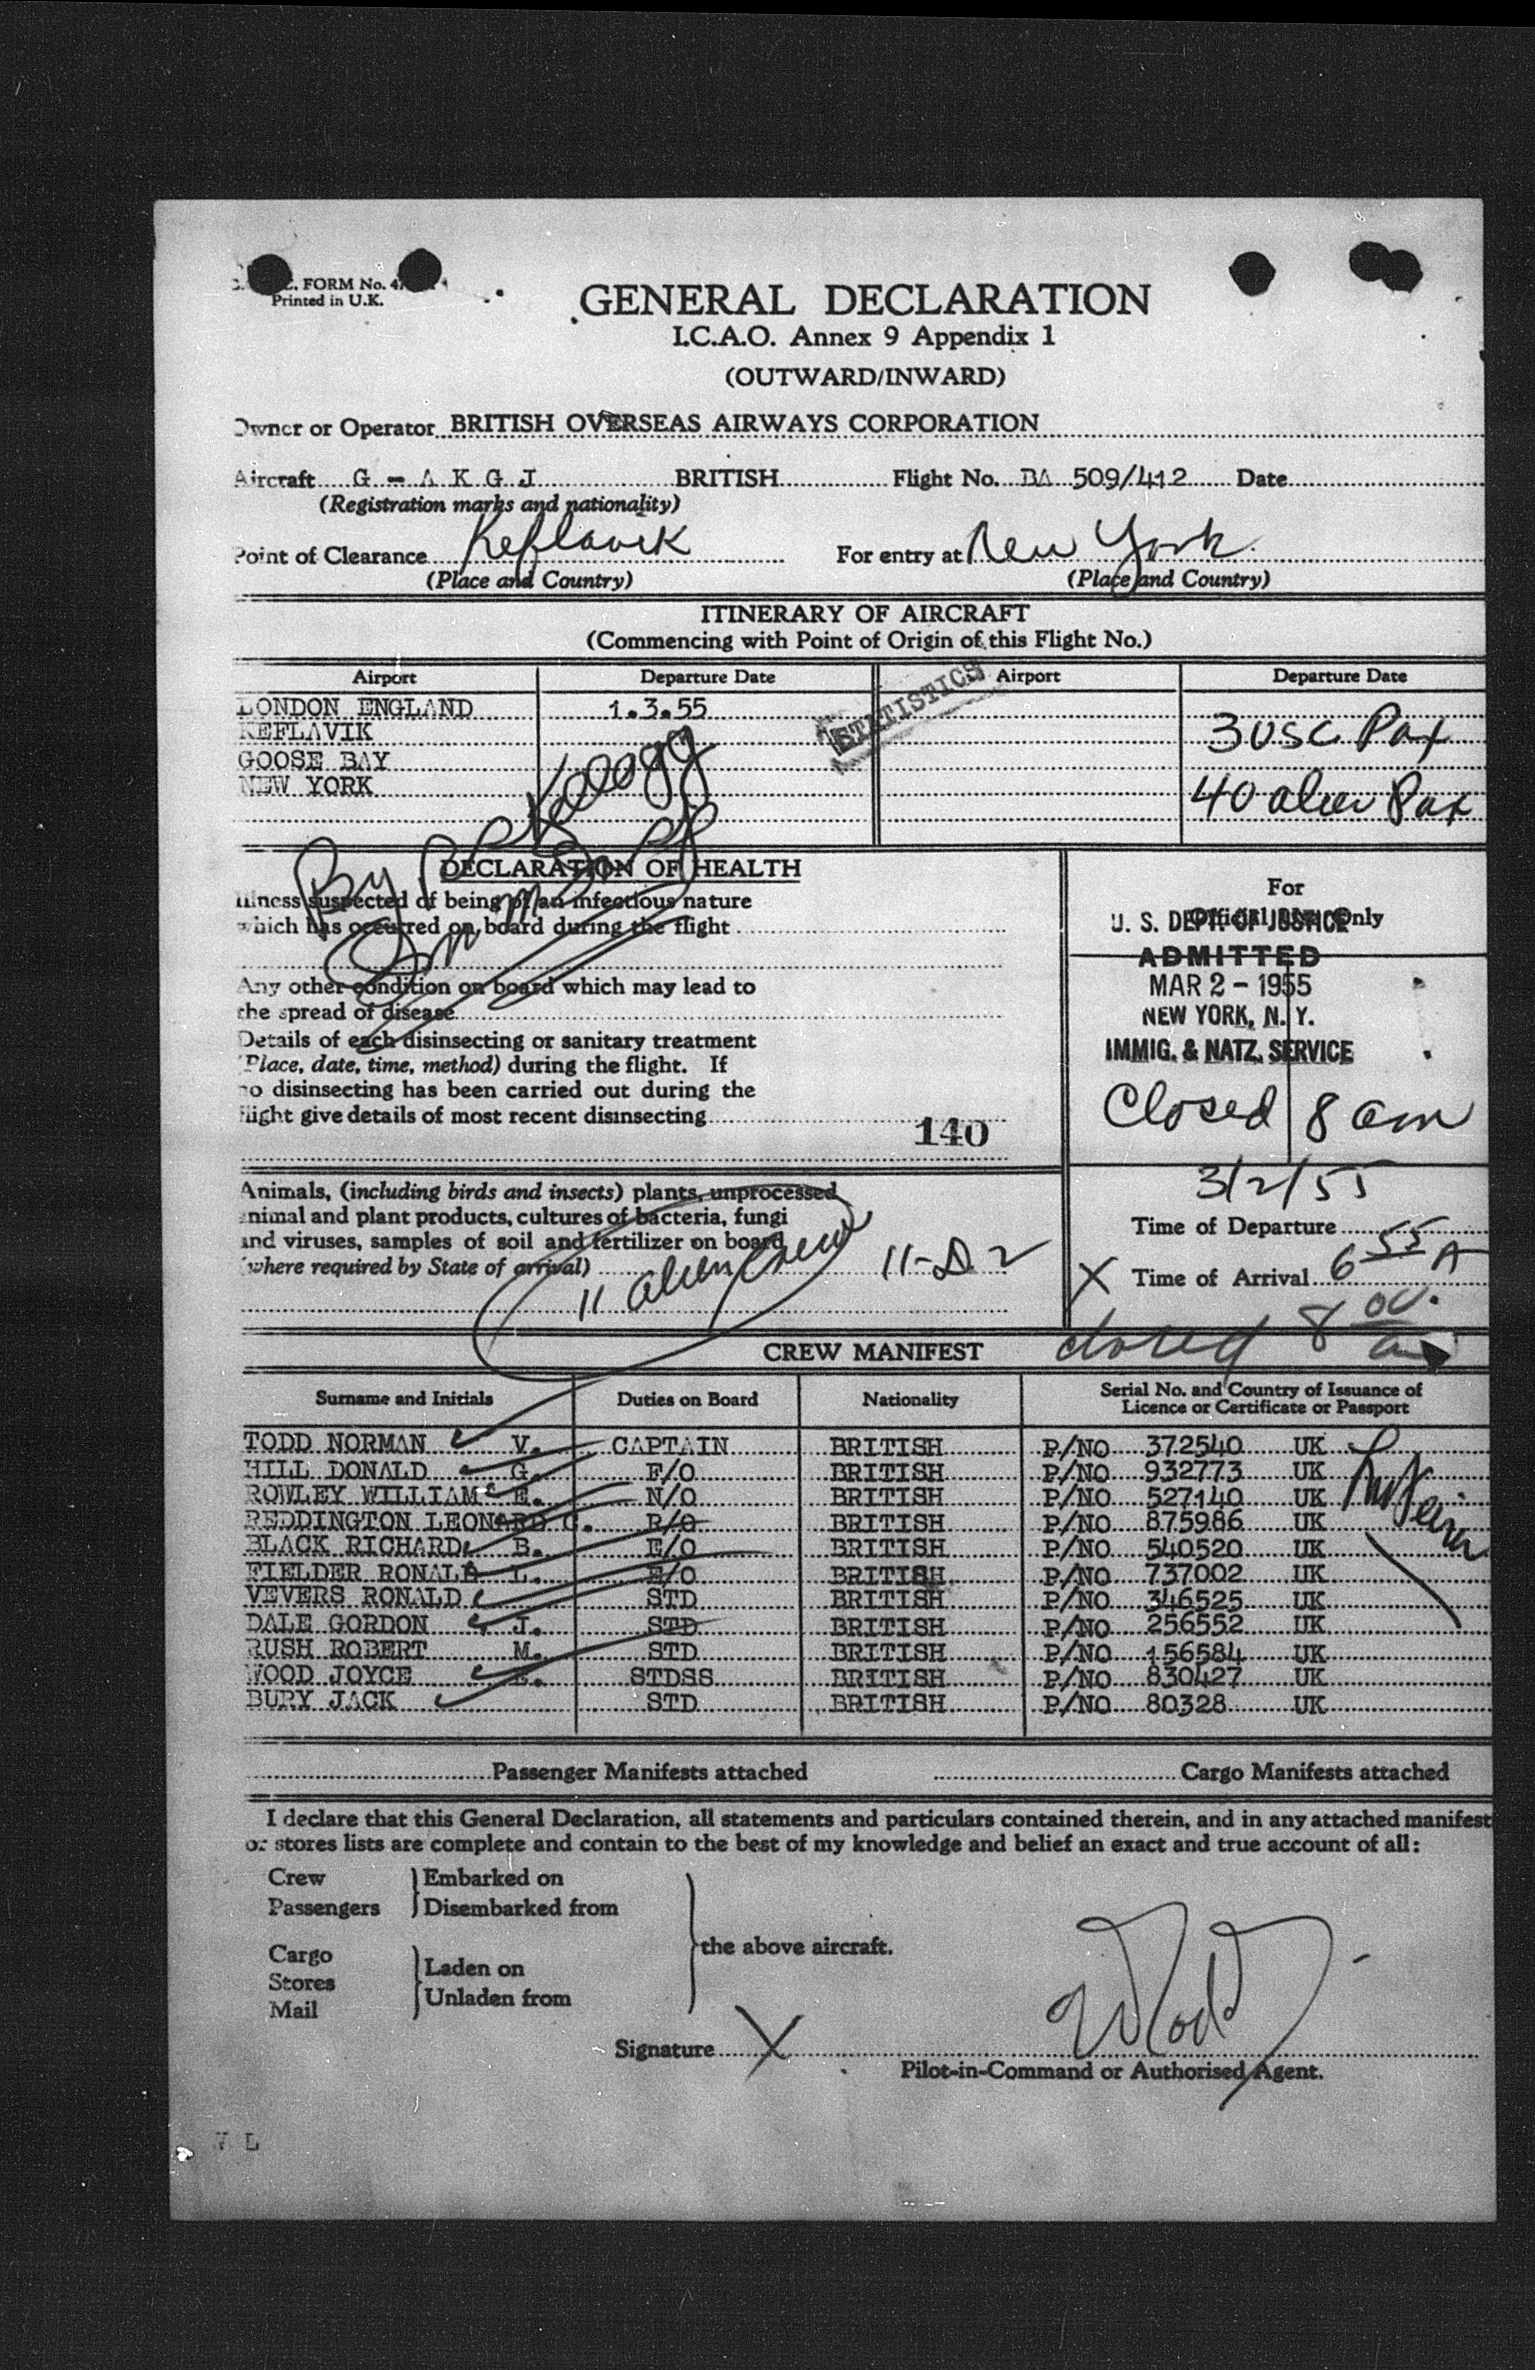 FORM No. 4
Printed in U.K.
GENERAL DECLARATION
I.C.A.O. Annex 9 Appendix 1
(OUTWARD/INWARD)
Owner or Operator BRITISH OVERSEAS AIRWAYS CORPORATION
Aircraft G - A K G J BRITISH Flight No. BA 509/412 Date
(Registration marks and nationality)
Point of Clearance Keflavik For entry at New York
(Place and Country) (Place and Country)
ITINERARY OF AIRCRAFT
(Commencing with Point of Origin of this Flight No.)
Airport Departure Date Airport Departure Date
LONDON ENGLAND 1.3.55
STATISTICS
KEFLAVIK 3 USC Pax
GOOSE BAY
NEW YORK 40 alien Pax
By Kellogg
DECLARATION OF HEALTH
Illness suspected of being of an infectious nature
which has occurred on board during the flight
Any other condition on board which may lead to
the spread of disease
Details of each disinsecting or sanitary treatment
(Place, date, time, method) during the flight. If
no disinsecting has been carried out during the
flight give details of most recent disinsecting
140
For
Official Use Only
U. S. DEPT. OF JUSTICE
ADMITTED
MAR 2 - 1955
NEW YORK, N. Y.
IMMIG. & NATZ. SERVICE
Closed 8 am
3/2/55
Animals, (including birds and insects) plants, unprocessed
animal and plant products, cultures of bacteria, fungi
and viruses, samples of soil and fertilizer on board
(where required by State of arrival)
11 alien crew 11-D.2
Time of Departure
X Time of Arrival 6 55 A
closed 8 00
CREW MANIFEST
Surname and Initials Duties on Board Nationality Serial No. and Country of Issuance of
Licence or Certificate or Passport
TODD NORMAN V. CAPTAIN BRITISH P/NO 372540 UK
HILL DONALD G. F/O BRITISH P/NO 932773 UK
ROWLEY WILLIAM E. N/O BRITISH P/NO 527140 UK
REDDINGTON LEONARD C. R/O BRITISH P/NO 875986 UK
BLACK RICHARD B. E/O BRITISH P/NO 540520 UK
FIELDER RONALD L. E/O BRITISH P/NO 737002 UK
VEVERS RONALD STD BRITISH P/NO 346525 UK
DALE GORDON J. STD BRITISH P/NO 256552 UK
RUSH ROBERT M. STD BRITISH P/NO 156584 UK
WOOD JOYCE STDSS BRITISH P/NO 830427 UK
BURY JACK STD BRITISH P/NO 80328 UK
Passenger Manifests attached Cargo Manifests attached
I declare that this General Declaration, all statements and particulars contained therein, and in any attached manifest
or stores lists are complete and contain to the best of my knowledge and belief an exact and true account of all:
Crew Embarked on
Passengers Disembarked from
the above aircraft.
Cargo Laden on
Stores
Mail Unladen from
Signature X
Pilot-in-Command or Authorised Agent.